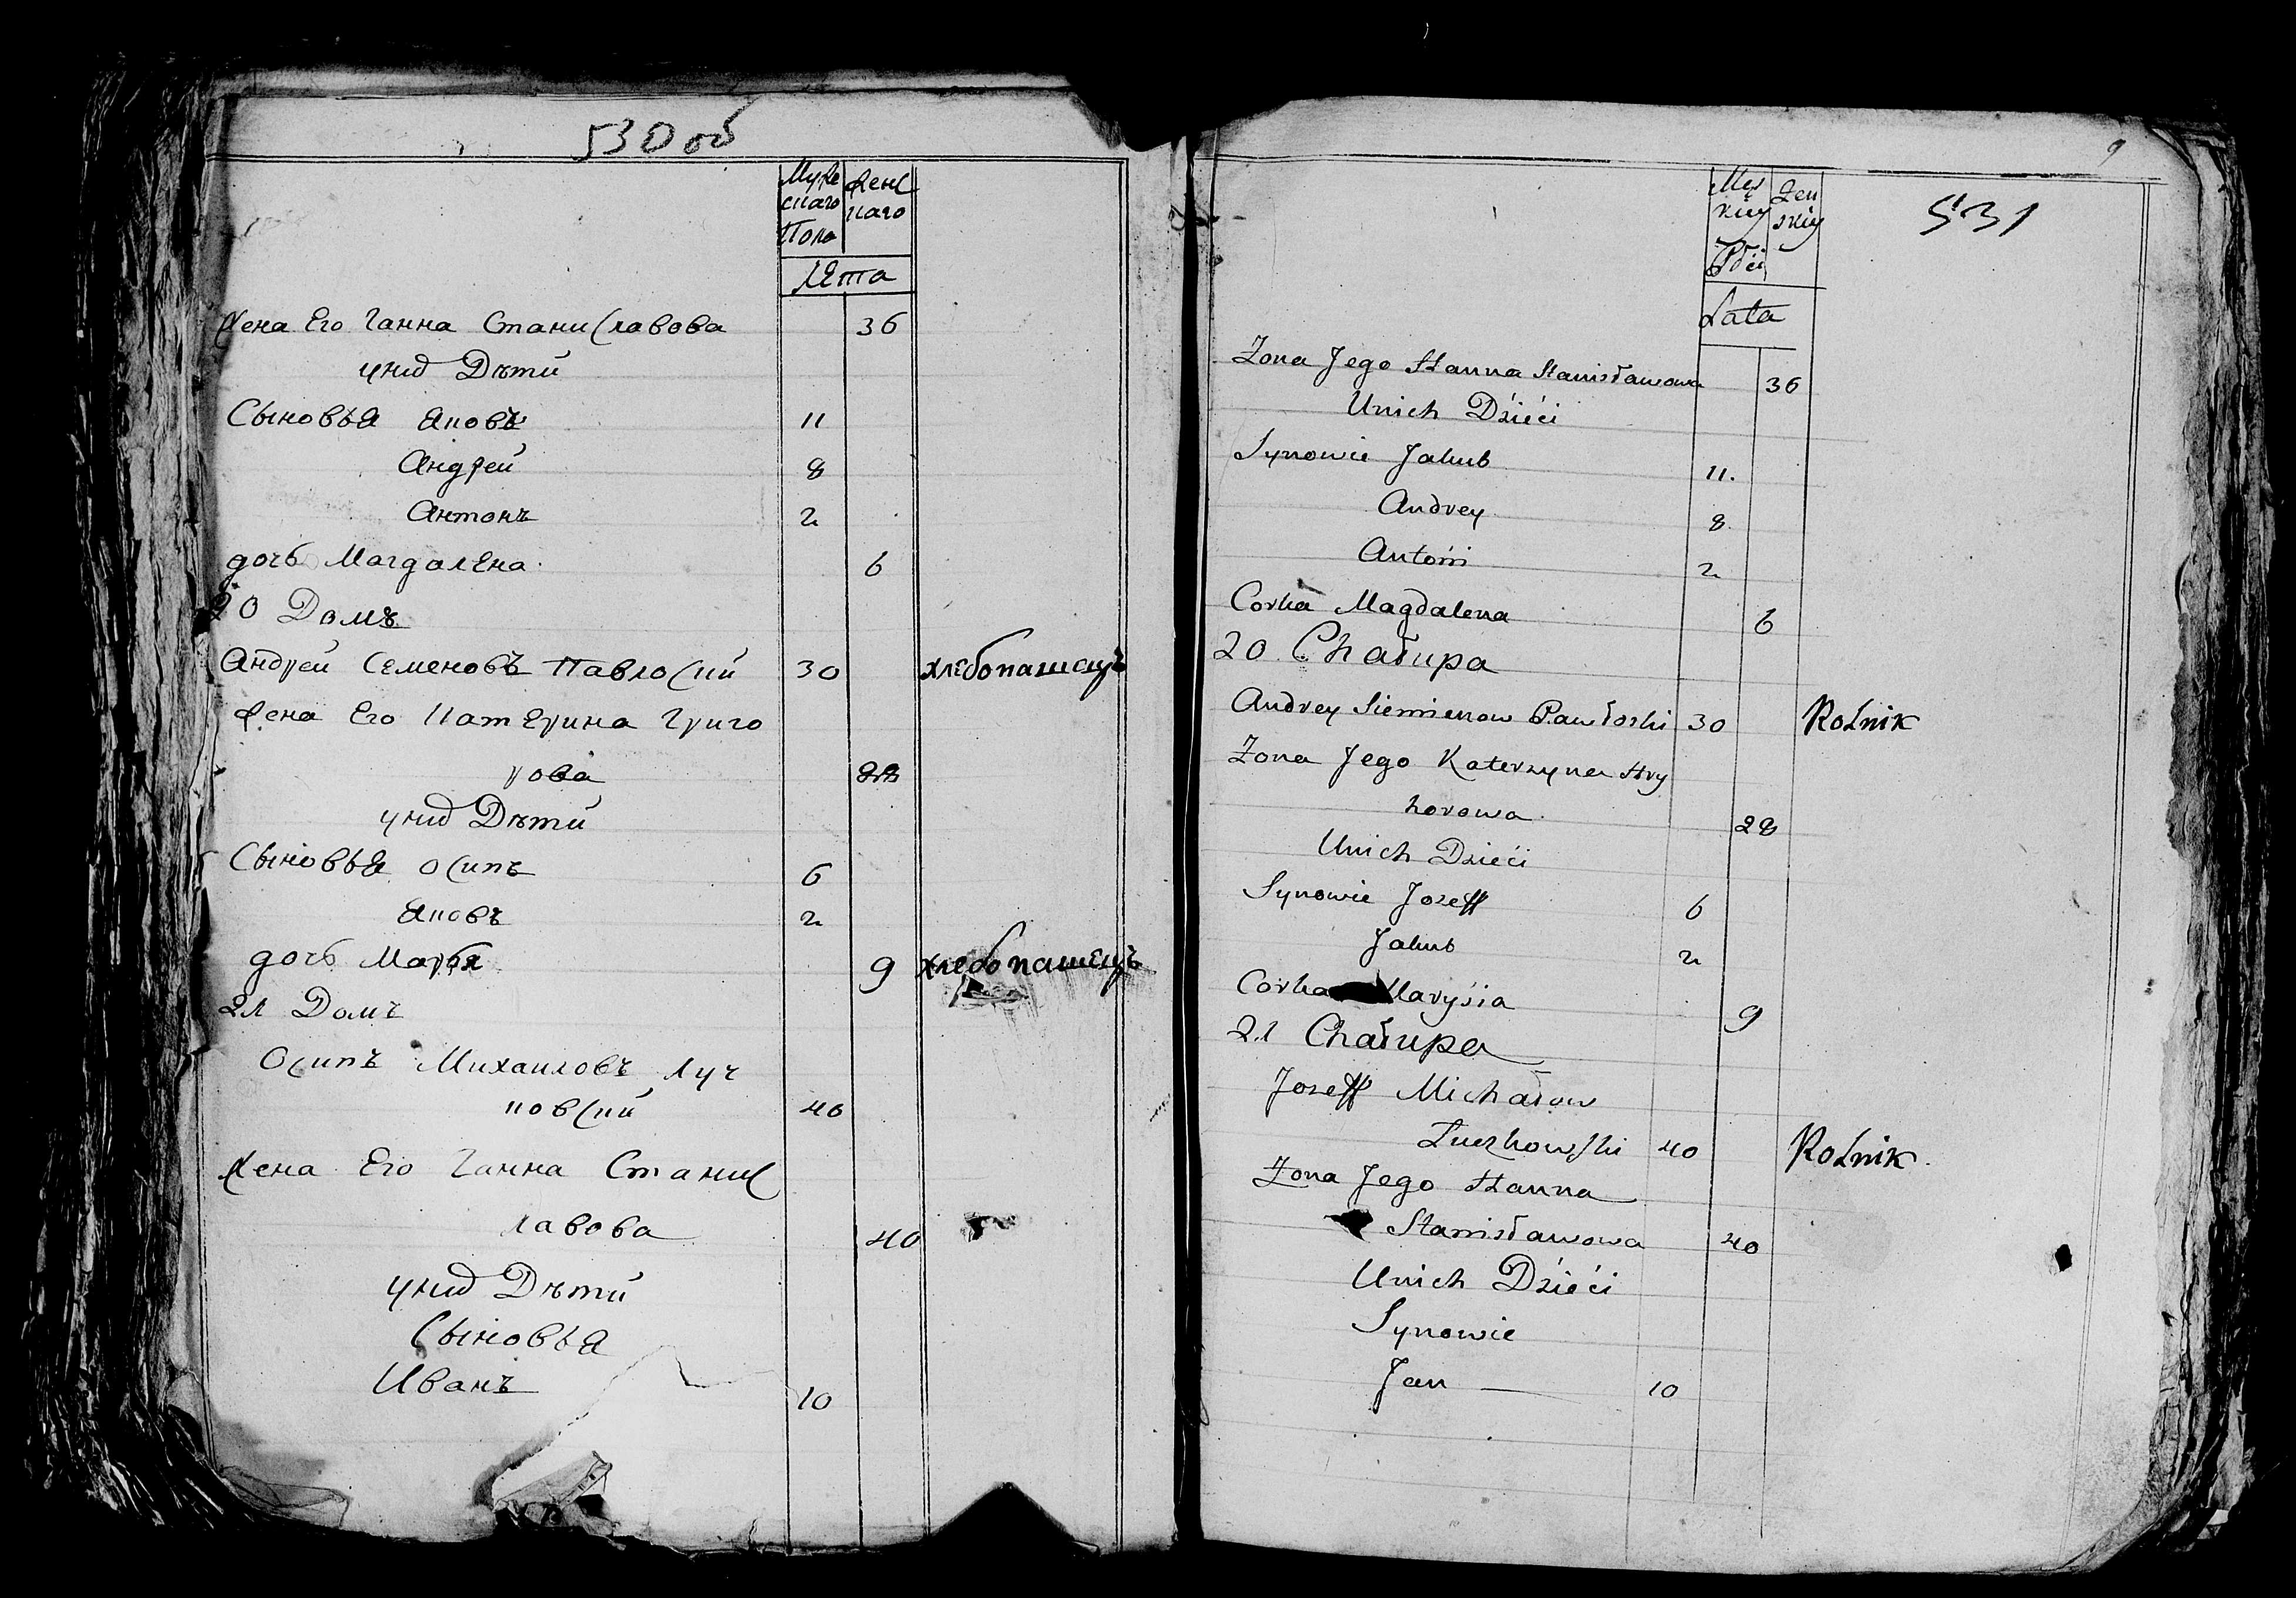 530 об
Муже Женс
скаго каго
Пола
Лета
Жена Его Ганна Станиславова 36
уних Дѣти
Сыновья Яковъ 11
Андрей 8
Антонъ 2
дочь Магдалена 6
20 Домъ
Андрей Семеновъ Павлоский 30 хлебопашецъ
Жена Его Катерина Григо
рова 28
уних Дѣти
Сыновья Осипъ 6
Яковъ 2
дочь Марья 9 хлебопашецъ
21 Домъ
Осипъ Михаиловъ Луч
ковский 40
Жена Его Ганна Станис
лавова 40
уних Дѣти
Сыновья
Иванъ 10
9
531
Męs Żeń
kiey skiey
Płci
Lata
Zona Jego Hanna Stanisławowa 36
Unich Dzieći
Synowie Jakub 11.
Andrey 8
Antoni 2
Corka Magdalena 6
20 Chałupa
Andrey Siemienow Pawłoski 30 Rolnik
Zona Jego Katerzyna Hry
horowa 28
Unich Dzieći
Synowie Joseff 6
Jakub 2
Corka Marysia 9
21 Chałupa
Joseff Michałow
Łuczkowski 40 Rolnik
Zona Jego Hanna
Stanisławowa 40
Unich Dzieći
Synowie
Jan 10